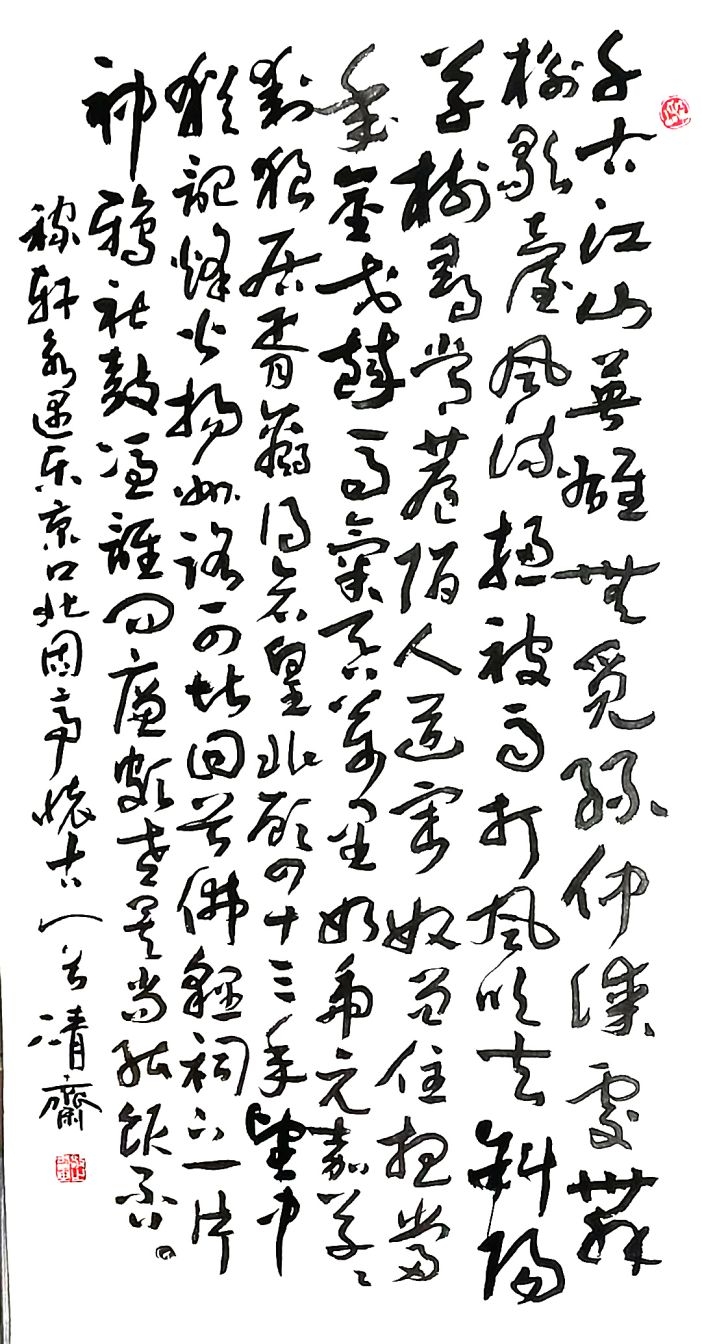 千古江山英雄無覓孫仲謀處舞
榭歌臺風流總被雨打風吹去斜陽
草樹尋常巷陌人道寄奴曾住想當
年金戈鐵馬氣吞萬里如虎元嘉草々
封狼居胥贏得倉皇北顧四十三年望中
猶記烽火揚州路可堪回首佛貍祠下一片
神鴉社鼓憑誰問廉頗老矣尚能飯否。
稼軒永遇乐京口北固亭懷古 清齋